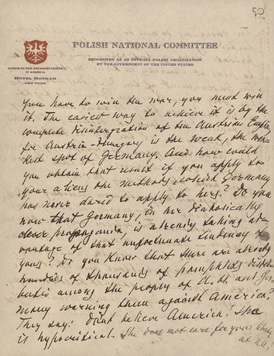 50
POLISH NATIONAL COMMITTEE
RECOGNIZED AS AN OFFICIAL POLISH ORGANIZATION
BY THE GOVERNMENT OF THE UNITED STATES
IN AMERICA
HOTEL GOTHAM
You have to win the war, you must win
it. The easiest way to achieve it is by the
complete disintegration of the Austrian Empire
for Austria-Hungary is the weak, the
spot of Germany. And how could
you obtain that result if you apply to
your aliens the methods Germany
has never dared to apply to hers? Do you
know that Germany, in her diabolically
clever propaganda, is already taking ad-
vantage of that unfortunate tendency of
yours? Do you know that there are already
hundreds of thousands of pamphlets distri-
buted among the people of A. H. and Ger-
many warning them against America?
They say: Don't believe America! She
is hypocritical. She does not care for your liberty
at all.